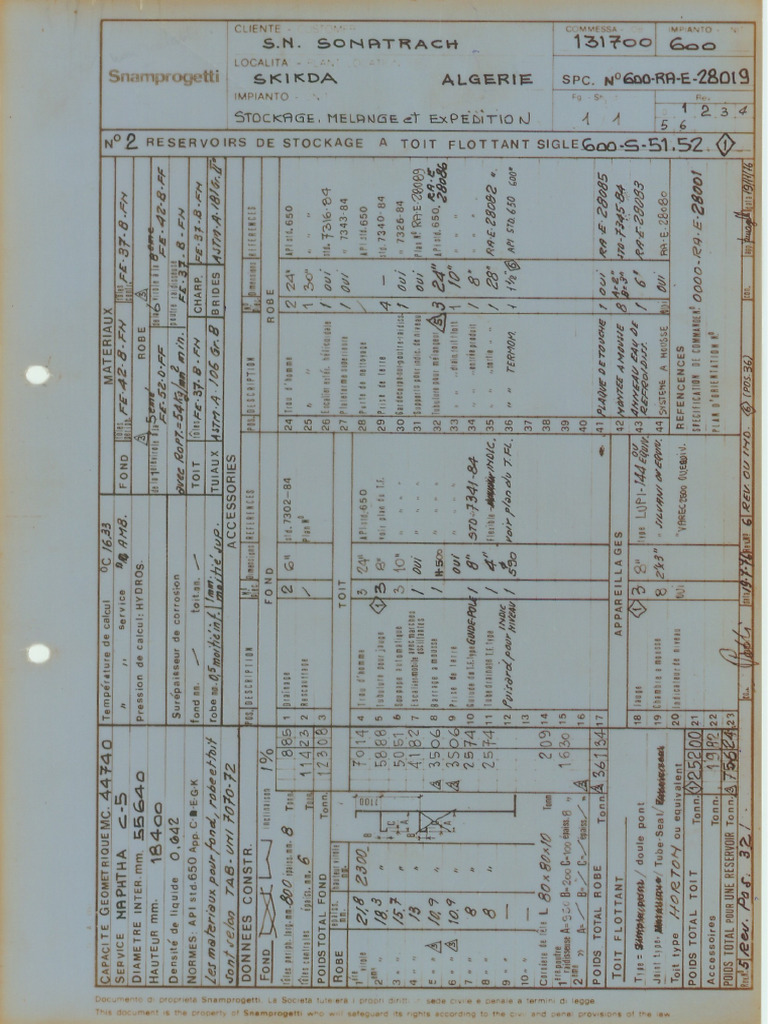 Snamprogetti
CLIENTE - CUSTOMER
S.N. SONATRACH
LOCALITÀ - PLANT LOCATION
SKIKDA ALGERIE
IMPIANTO -
STOCKAGE, MELANGE et EXPEDITION
COMMESSA
131700
IMPIANTO
600
SPC. N° 600-RA-E-28019
Fg.
1 1
Rev.
1 2 3 4
5 6
N° 2 RESERVOIRS DE STOCKAGE A TOIT FLOTTANT SIGLE 600-S-51.52
CAPACITÉ GEOMETRIQUE MC. 44740
SERVICE NAPHTHA C-5
DIAMETRE INTER. mm. 55640
HAUTEUR mm. 18400
Densité de liquide 0.642
NORMES: API std. 650 App. C-D-E-G-K
Les materiaux pour fond, robe et toit
sont selon TAB-UNI 7070-72
Température de calcul °C 16.33
" service " AMB.
Pression de calcul: HYDROS.
Surépaisseur de corrosion
fond mm. — toit mm. —
robe mm. 0,5 moitié inf. 1mm. moitié sup.
MATERIAUX
FOND FE-42-B.FN FE-37-B.FN
ROBE
FE-52-D.FF
FE-42-B-FF
FE-37.B.FN
TOIT FE-37-B.FN CHARP. FE-37-B.FN
TUIAUX ASTM-A.106 Gr.B BRIDES ASTM-A.181 Gr.II°
DONNÉES CONSTR.
FOND INCLINAISON 1%
Toles periph. larg. mm. 800 épaiss. mm. 8 Tonn. 885
Toles centrales épaiss. mm. 6 11423
POIDS TOTAL FOND Tonn. 12308
ROBE
1° 21,8 2300 7014
2° 18,3 " 5888
3° 15,7 " 5051
4° 13 " 4182
5° 10,9 " 3506
6° 10.9 " 3506
7° 8 " 2574
8° 8 " 2574
9° — —
10° — —
Cornière de tete L 80x80x10 Tonn 209
1630
POIDS TOTAL ROBE Tonn.
TOIT FLOTTANT
Type = Simple pont / doule pont
/ Tube-Seal /
Toit type HORTON ou equivalent
POIDS TOTAL TOIT Tonn. 125200
Accessoires " 1982
POIDS TOTAL POUR UNE RESERVOIR Tonn.
ACCESSORIES
POS. DESCRIPTION REFERENCES
FOND
1 Drainage 2 6" std. 7302-84
2 Raccrottage Plan N°
3
TOIT
4 Trou d'homme 3 24" API std. 650
5 Tubulure pour jauge 3 8" voir plan du T.F.
6 Soupape automatique 3 10" " " "
7 Echelle mobile avec marches oscillantes 1 OUI " " "
8 Barrage a mousse 1 H=500 " " "
9 Prise de terre OUI " " "
10 GUIDE POLE 1 8" STD-7341-84
11 1 4" Flexible INDIC.
12 Puisard pour INDIC NIVEAU 1 590 voir plan du T.FL.
13
14
15
16
17
APPAREILLAGES
18 Jauge 3 8" TYPE LUPI-144 OU EQUIV.
19 Chambre a mousse 8 2"x3" " SILVANI OU EQUIV.
20 Indicateur de niveau OUI "VAREC 2500 OU EQUIV.
21
22
23
POS. DESCRIPTION Dimensions REFERENCES
ROBE
24 Trou d'homme 2 24" API std. 650
25 " " 1 30" " "
26 Escalier extér. hélicoidale 1 OUI std. 7316-84
27 Plateforme superieure 1 OUI " 7343-84
28 Porte de nettoyage API std. 650
29 Prise de terre 4 — std. 7340-84
30 1 OUI " 7326-84
31 1 OUI Plan N° RA-E 28089
32 Tubulure pour mélangeur 3 24" API std. 650, RA-E 28086
33 " drain. toit flott. 1 10" " "
34 " entrée produit 1 8" " "
35 " sortie " 1 28" RA-E-28082
36 " TERMOM. 1 1½" API STD. 650 600#
37
38
39
40
41 PLAQUE DE TOUCHE 1 OUI RA-E-28085
42 MONTÉE A MOUSSE STD-7345-84
43 ANNEAU EAU DE REFROIDISS. 1 6" RA-E-28083
44 SYSTEME A MOUSSE OUI RA-E-28080
REFERENCES
SPÉCIFICATION DE COMMANDE N° 0000-RA-E-28001
PLAN D'ORIENTATION N°
N° 5 Rev. Pos. 32
19-7-76
6 REV OU IND. (POS.36)
19/11/76
Documento di proprietà Snamprogetti. La Società tutelerà i propri diritti in sede civile e penale a termini di legge.
This document is the property of Snamprogetti who will safeguard its rights according to the civil and penal provisions of the law.